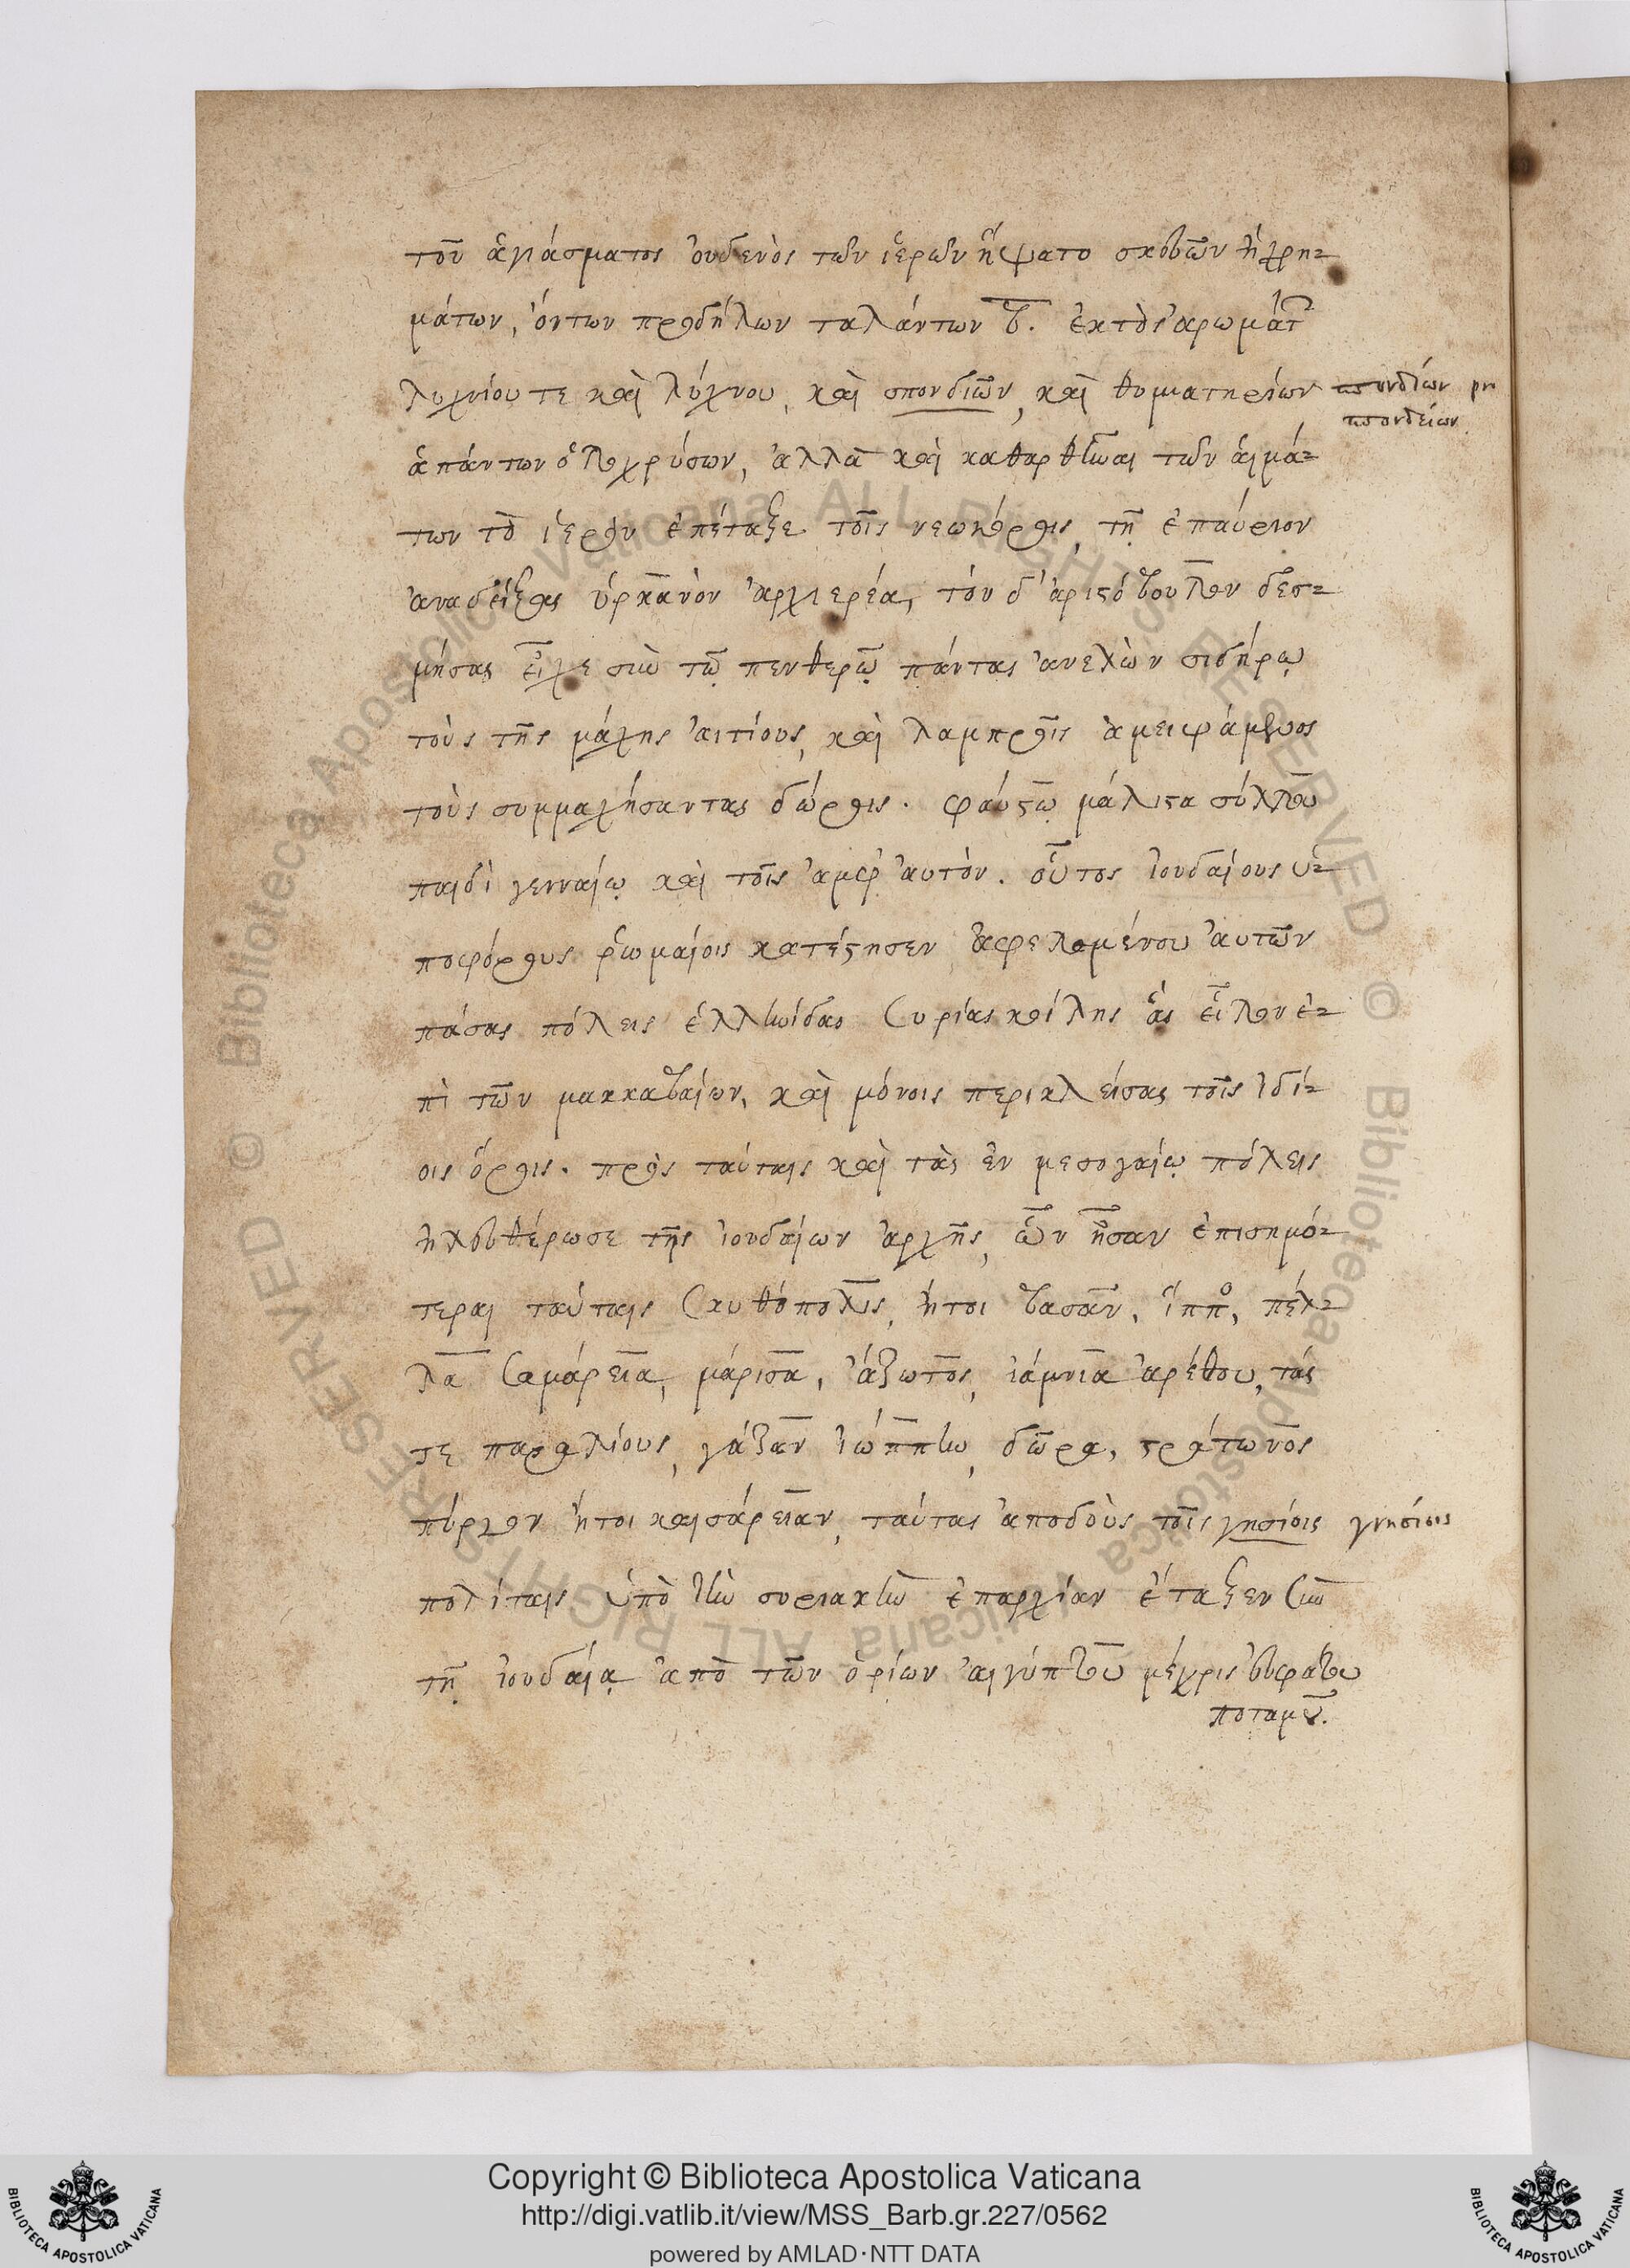 τοῦ ἁγιάσματος οὐδενὸς τῶν ἱερῶν ἥψατο σκευῶν ἢ χρη-
μάτων, ὄντων προδήλων ταλάντων β. ἐκτὸς ἀρωμάτ
λυχνίου τε καὶ λύχνου, καὶ σπονδιῶν, καὶ θυμιατηρίων
σπονδίων
σπονδείων
ἁπάντων ὁλοχρύσων, ἀλλὰ καὶ καθαρθῆναι τῶν αἱμά-
των τὸ ἱερὸν ἐπέταξε τοῖς νεωκόροις, τῇ ἐπαύριον
ἀναδείξας ὑρκανὸν ἀρχιερέα, τὸν δ' ἀριστόβουλον δεσ-
μήσας εἶχε σὺν τῷ πενθερῷ πάντας ἀνελὼν σιδήρῳ
τοὺς τῆς μάχης αἰτίους, καὶ λαμπροῖς ἀμειψάμενος
τοὺς συμμαχήσαντας δώροις. φαύστῳ μάλιστα σύλλου
παιδὶ γενναίῳ καὶ τοῖς ἀμφ' αὐτόν. οὗτος ἰουδαίους ὑ-
ποφόρους ῥωμαίοις κατέστησεν ἀφελομένου αὐτῶν
πάσας πόλεις ἑλληνίδας Συρίας κοίλης ἃς εἷλον ἐ-
πὶ τῶν μακκαβαίων, καὶ μόνοις περικλείσας τοῖς ἰδί-
οις ὅροις. πρὸς ταύταις καὶ τὰς ἐν μεσογαίῳ πόλεις
ἠλευθέρωσε τῆς ἰουδαίων ἀρχῆς, ὧν ἦσαν ἐπισημό-
τεραι ταύταις Σκυθόπολις, ἤτοι βασάν, ἵππο, πέλ-
λα Σαμάρεια, μάρισα, ἄζωτος, ἰάμνια ἀρέθου, τάς
τε παραλίους, γάζαν ἰώππην, δῶρα, στράτωνος
πύργον ἤτοι καισάρειαν, ταύτας ἀποδοὺς τοῖς γησίοις
γνησίοις
πολίταις ὑπὸ τὴν συριακὴν ἐπαρχίαν ἔταξεν Σὺν
τῇ ἰουδαίᾳ ἀπὸ τῶν ὁρίων αἰγύπτου μέχρις εὐφράτου
ποταμοῦ.
Copyright © Biblioteca Apostolica Vaticana
http://digi.vatlib.it/view/MSS_Barb.gr.227/0562
powered by AMLAD·NTT DATA